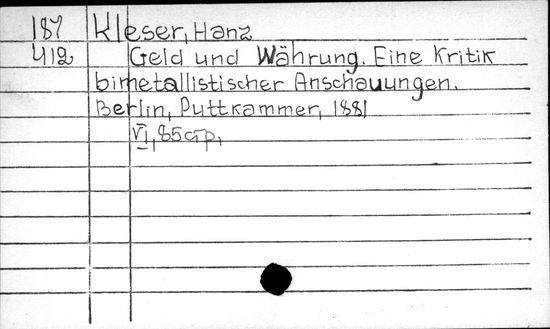 187 Kleser, Hanz
412 Geld und Währung. Eine Kritik
bimetallistischer Anschauungen.
Berlin, Puttkammer, 1881
VI, 85 стр.